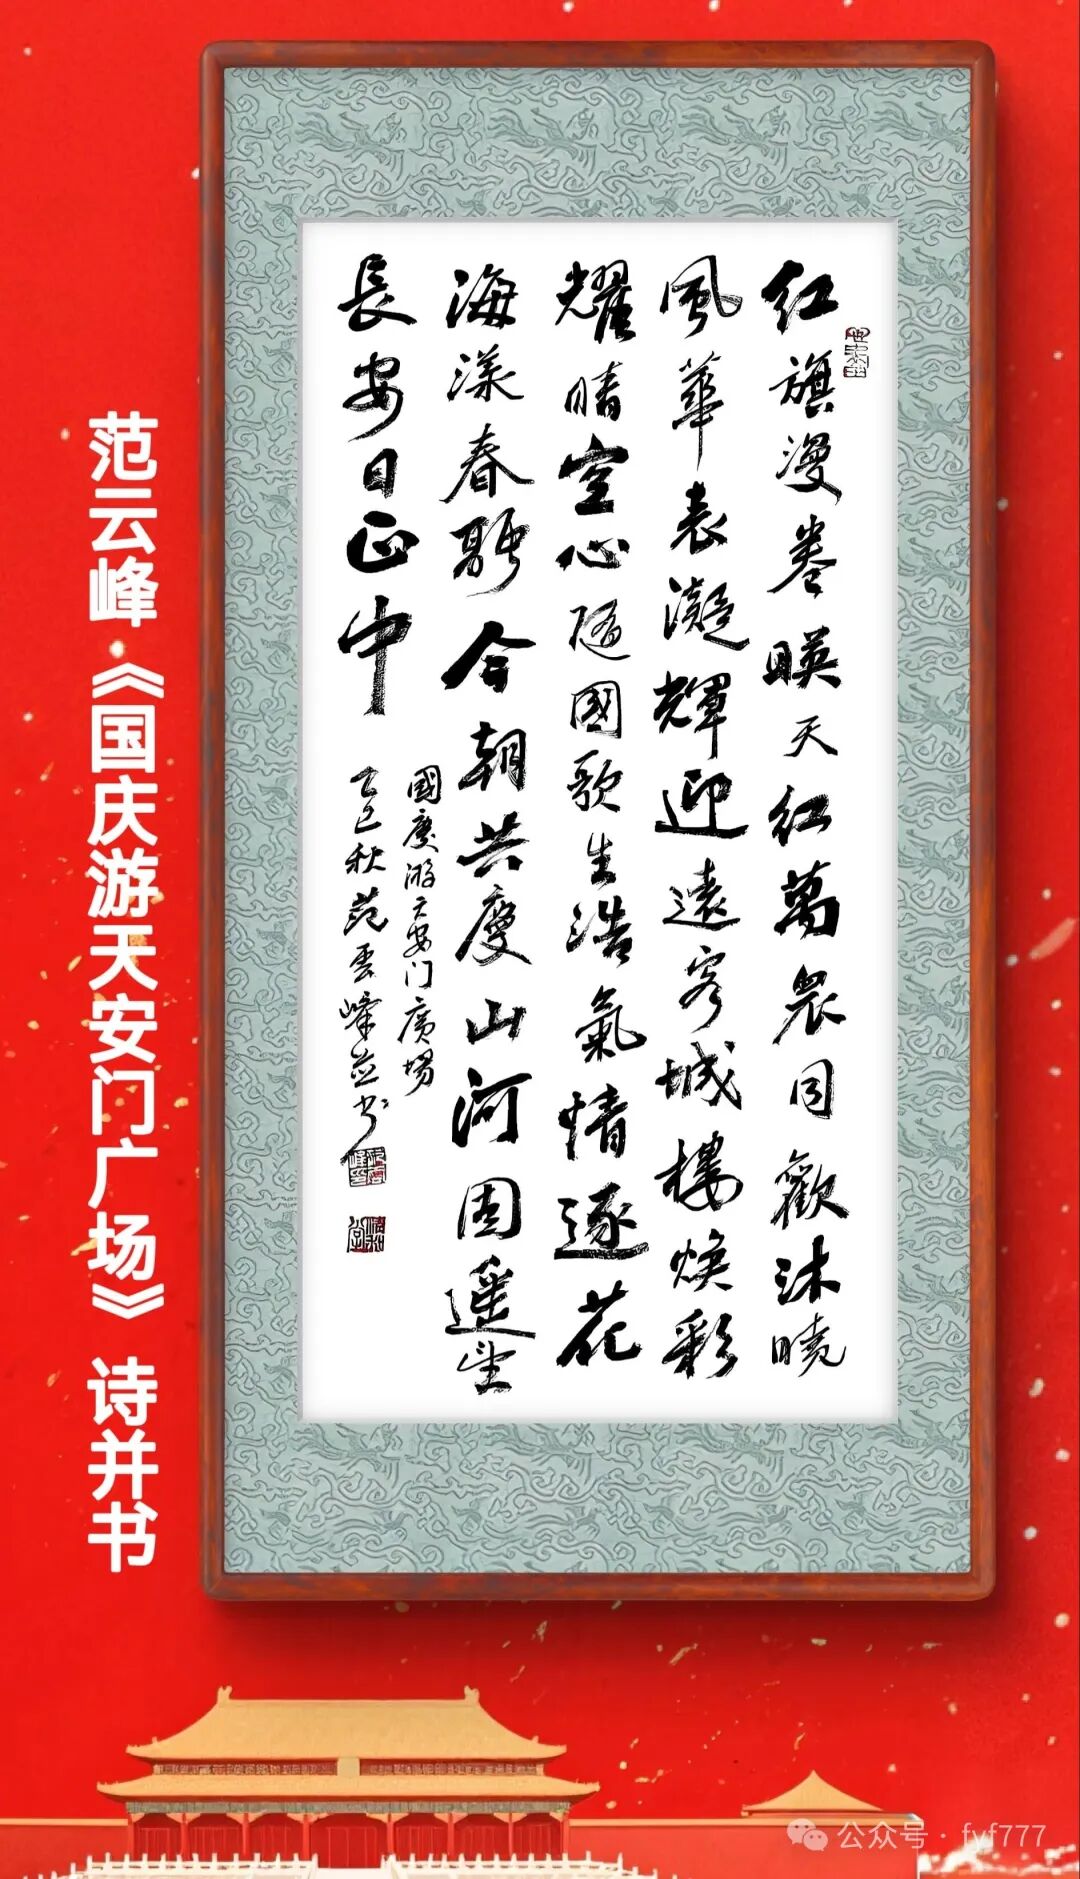 红旗漫卷暎天红萬眾同歡沐曉
風華表凝輝迎遠客城樓煥彩
耀晴空心隨國歌生浩氣情逐花
海漾春融今朝共慶山河固遥望
長安日正中
國慶游天安门廣場
乙巳秋范雲峰並书
范云峰·《国庆游天安门广场》 诗并书
公众号·fyf777